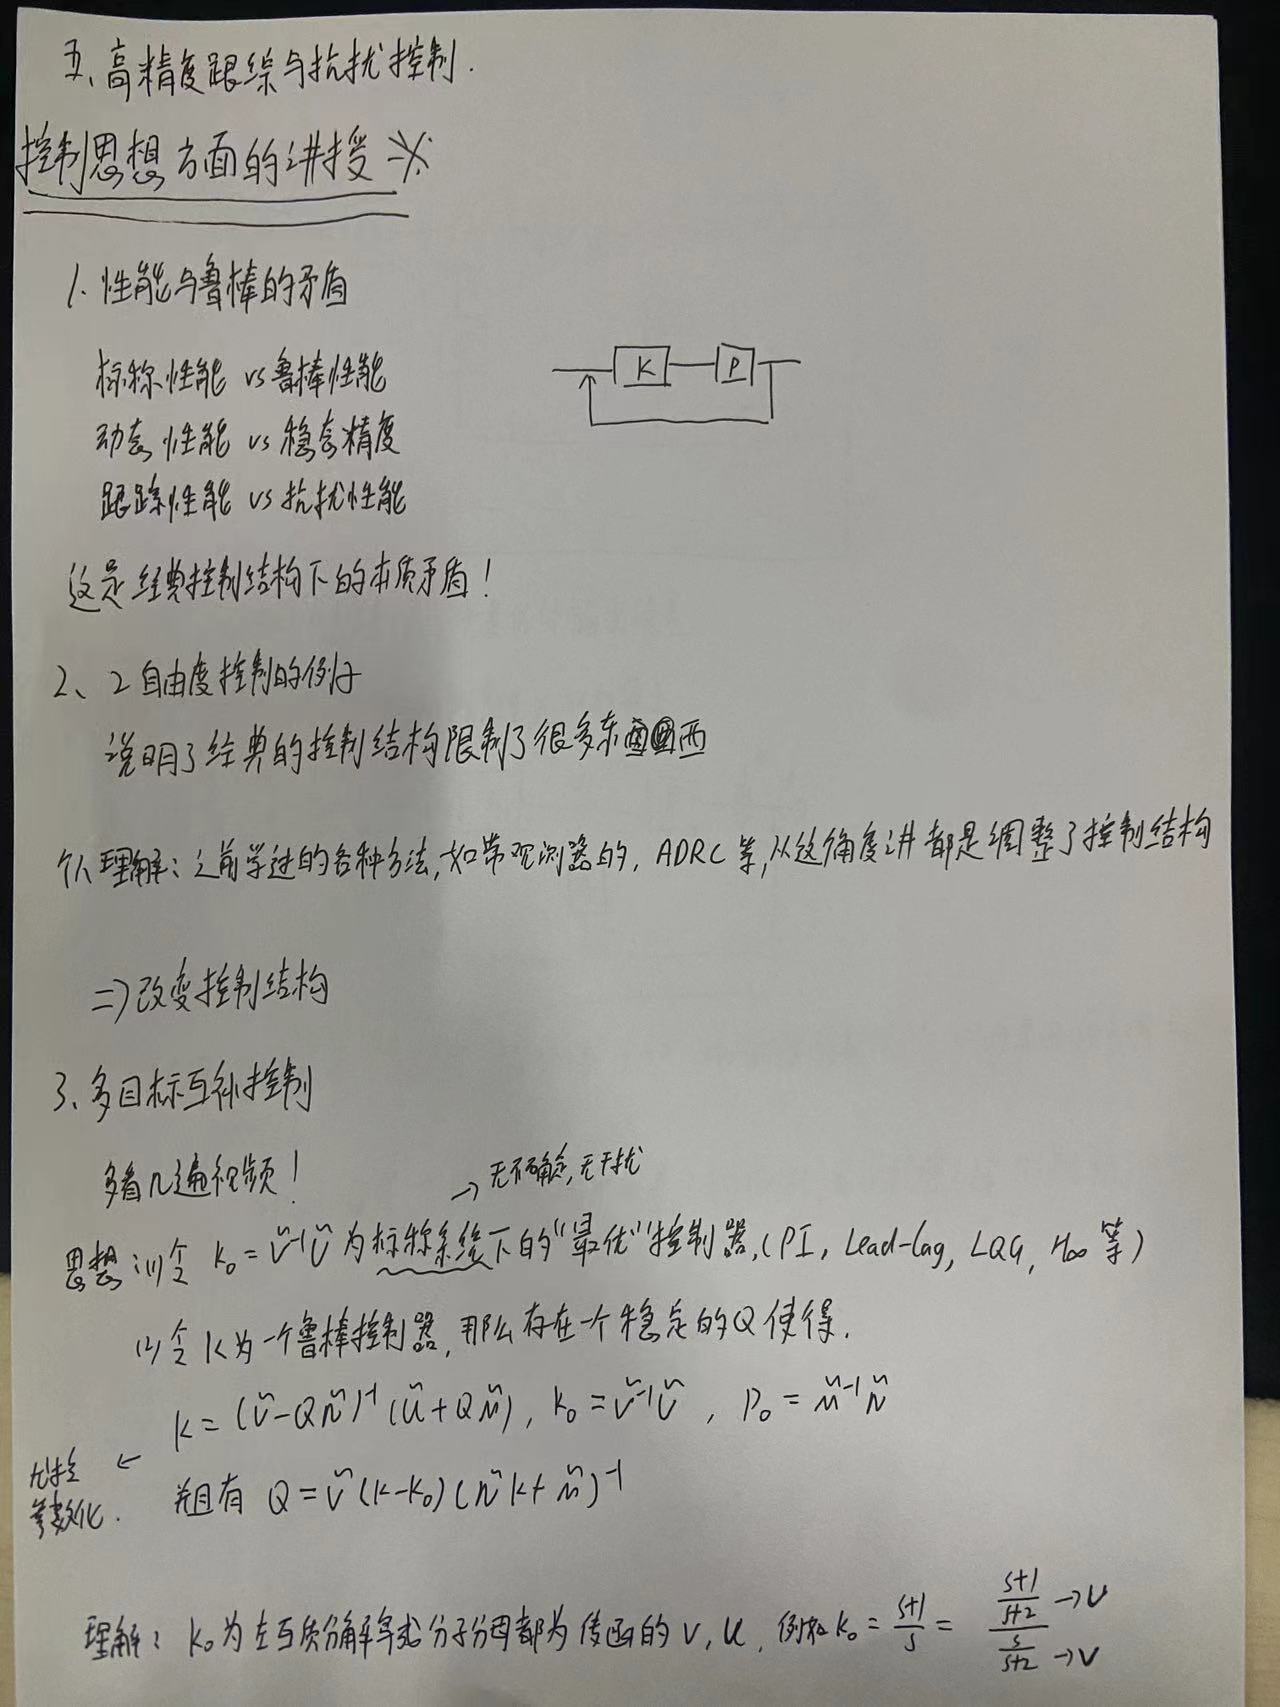 五、高精度跟综与抗扰控制.
控制思想方面的讲授 ※
1. 性能与鲁棒的矛盾
标称性能 vs 鲁棒性能
K P
动态性能 vs 稳态精度
跟踪性能 vs 抗扰性能
这是经典控制结构下的本质矛盾!
2、2自由度控制的例子
说明了经典的控制结构限制了很多东西
个人理解:之前学过的各种方法,如带观测器的, ADRC等,从这个角度讲都是调整了控制结构
=>改变控制结构
3、多目标互补控制
多看几遍视频!
→ 无不确定,无干扰
思想:(1)令 K₀ = Ṽ⁻¹Ũ 为标称系统下的“最优”控制器,(PI, Lead-lag, LQG, H∞ 等)
(2)令 K为一个鲁棒控制器,那么存在一个稳定的Q使得.
K = (Ṽ-QÑ)⁻¹(Ũ+QM̃), K₀ = Ṽ⁻¹Ũ, P₀ = M̃⁻¹Ñ
←
参数化.
并且有 Q = Ṽ(K-K₀)(ÑK+M̃)⁻¹
理解: K₀为左互质分解等式分子分母都为传函的 V, U, 例如 K₀ = (s+1)/s = ((s+1)/(s+2) → U)/(s/(s+2) → V)